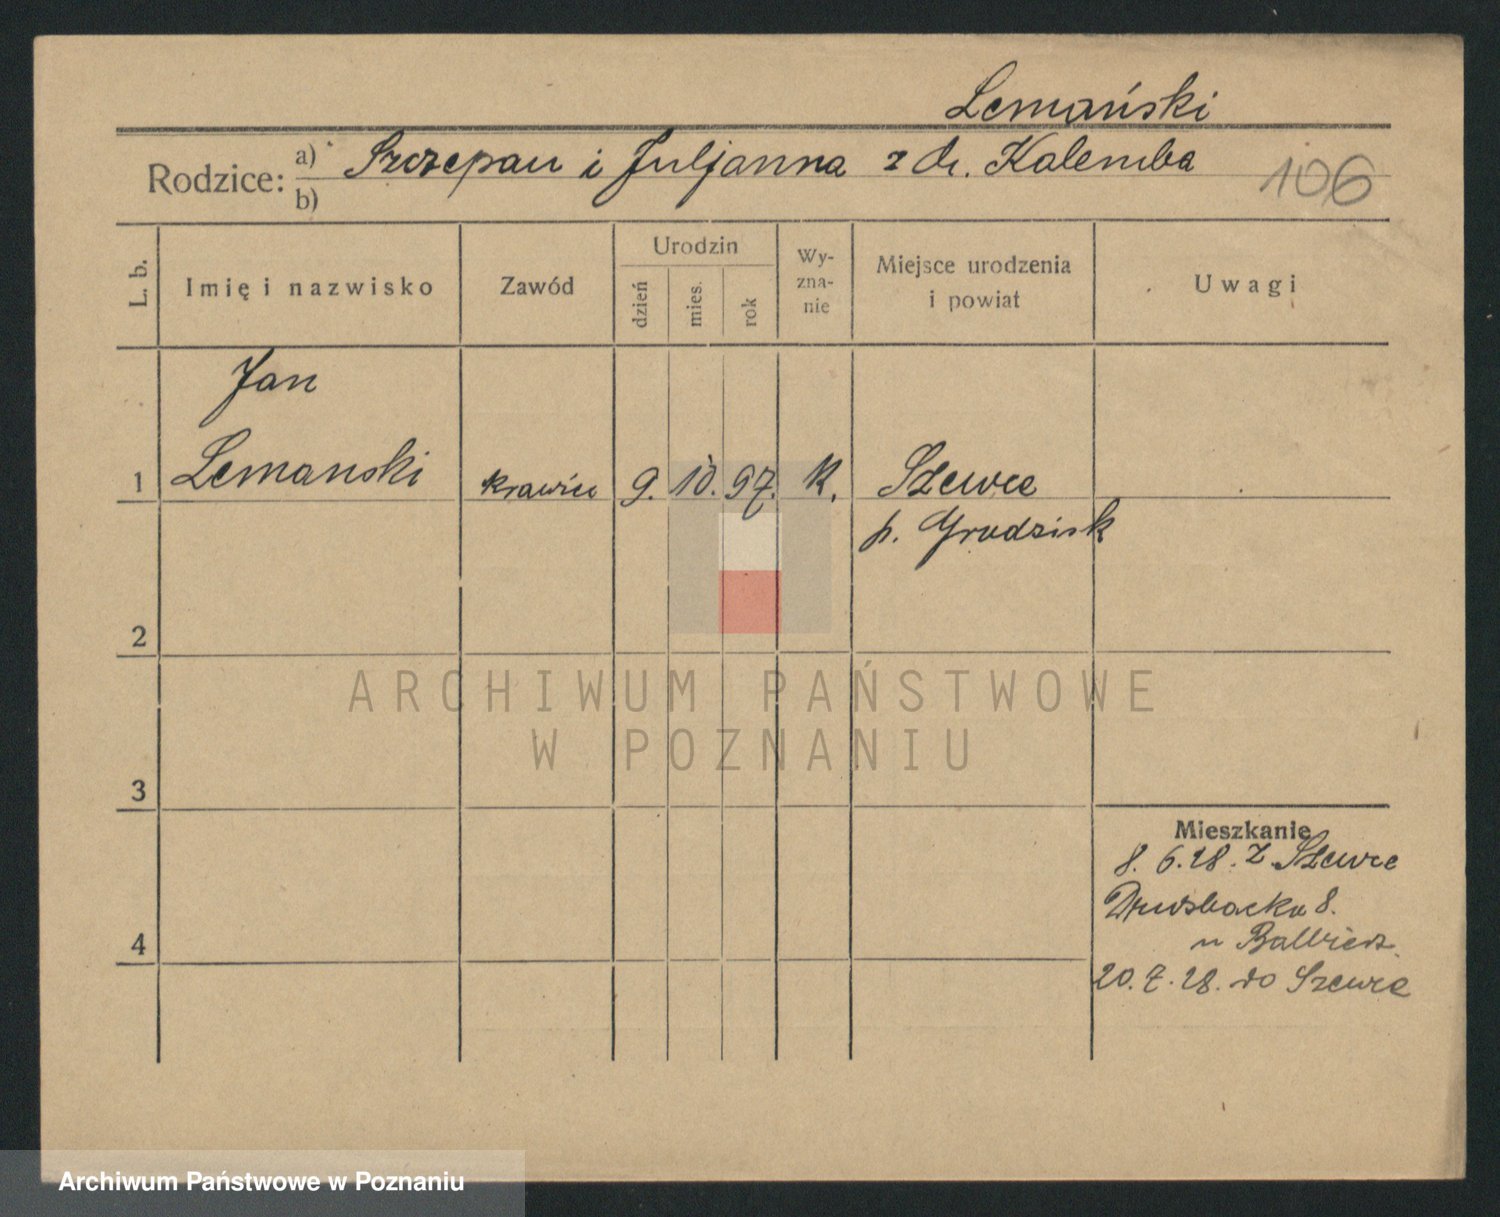 Lemański
Rodzice: a) Szczepan i Juljanna z d. Kalemba
b)
106
L. b. Imię i nazwisko Zawód Urodzin dzień mies. rok Wy- zna- nie Miejsce urodzenia i powiat Uwagi
Jan
1 Lemanski krawiec 9. 10. 97. K. Szewce
p. Grodzisk
2
ARCHIWUM PAŃSTWOWE
W POZNANIU
3
Mieszkanie
8. 6. 28. z Szewce
8.
4
20. 7. 28. do Szewce
Archiwum Państwowe w Poznaniu